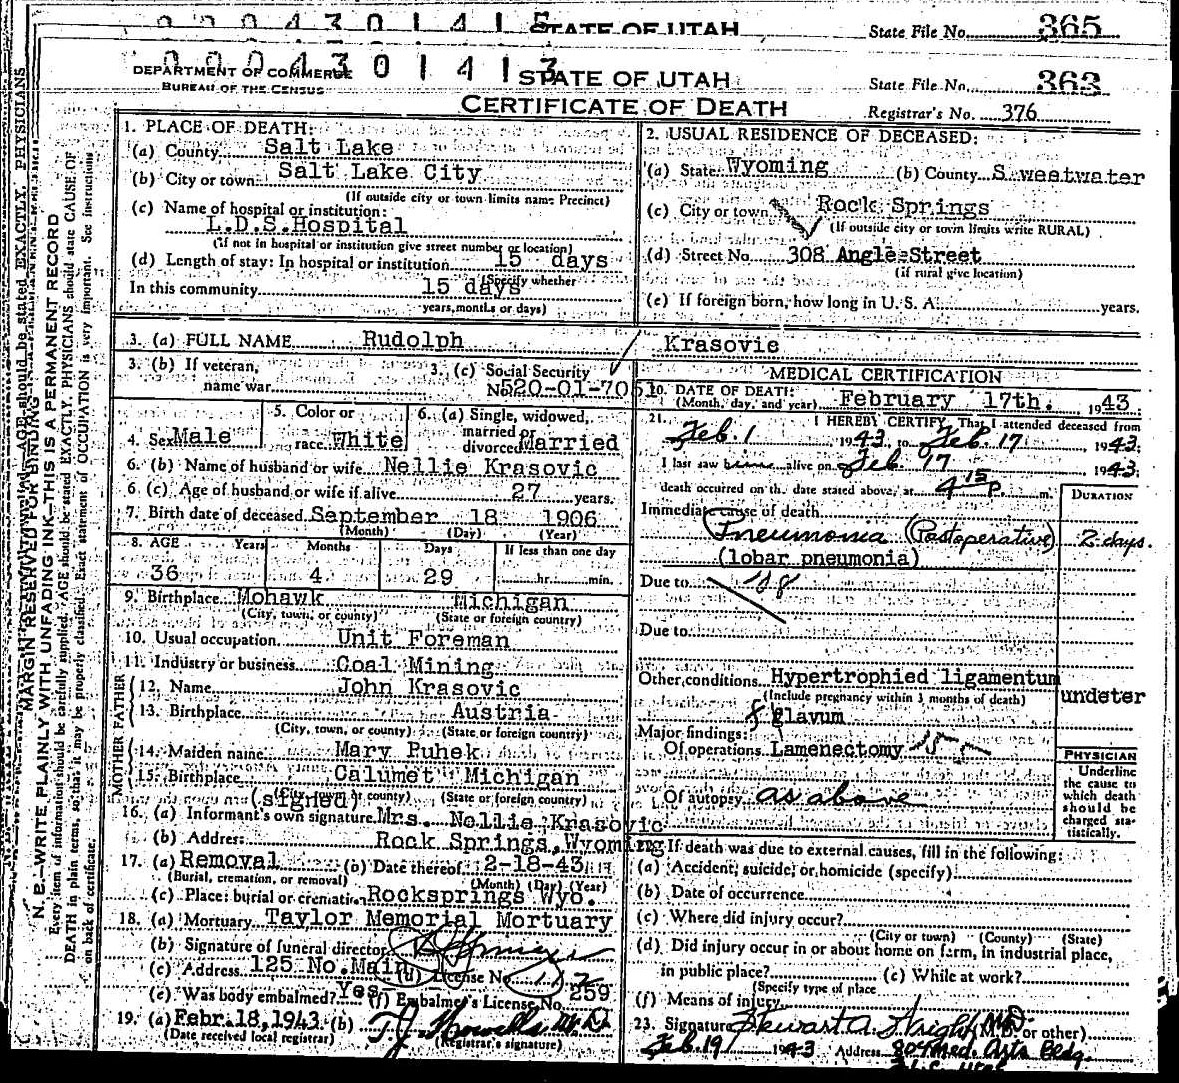 0 0 0 4 3 0 1 4 1 5 STATE OF UTAH State File No. 365
0 0 0 4 3 0 1 4 1 3
DEPARTMENT OF COMMERCE STATE OF UTAH State File No. 363
BUREAU OF THE CENSUS
CERTIFICATE OF DEATH Registrar's No. 376
1. PLACE OF DEATH:
(a) County Salt Lake
(b) City or town: Salt Lake City
(If outside city or town limits name Precinct)
(c) Name of hospital or institution:
L.D.S.Hospital
(If not in hospital or institution give street number or location)
(d) Length of stay: In hospital or institution 15 days
(Specify whether
In this community 15 days
years, months or days)
2. USUAL RESIDENCE OF DECEASED:
(a) State Wyoming (b) County Sweetwater
(c) City or town Rock Springs
(If outside city or town limits write RURAL)
(d) Street No. 308 Angle Street
(if rural give location)
(e) If foreign born, how long in U. S. A. years.
3. (a) FULL NAME Rudolph Krasovic
3. (b) If veteran, name war
3. (c) Social Security
No. 520-01-7051
4. Sex Male
5. Color or
race White
6. (a) Single, widowed,
married or
divorced Married
6. (b) Name of husband or wife Nellie Krasovic
6 (c) Age of husband or wife if alive 27 years.
7. Birth date of deceased September 18 1906
(Month) (Day) (Year)
8. AGE Years Months Days If less than one day
36 4 29 hr. min.
9. Birthplace Mohawk Michigan
(City, town, or county) (State or foreign country)
10. Usual occupation Unit Foreman
11. Industry or business Coal Mining
FATHER
12. Name John Krasovic
13. Birthplace Austria
(City, town, or county) (State or foreign country)
MOTHER
14. Maiden name Mary Puhek
15. Birthplace Calumet Michigan
(City, town, or county) (State or foreign country)
(signed)
16. (a) Informant's own signature Mrs. Nellie Krasovic
(b) Address Rock Springs, Wyoming
17. (a) Removal (b) Date thereof 2-18-43
(Burial, cremation, or removal) (Month) (Day) (Year)
(c) Place: burial or cremation Rocksprings Wyo.
18. (a) Mortuary Taylor Memorial Mortuary
(b) Signature of funeral director
(c) Address 125 No. Main (d) License No.
(e) Was body embalmed? Yes (f) Embalmer's License No. 259
19. (a) Febr. 18, 1943 (b)
(Date received local registrar) (Registrar's signature)
MEDICAL CERTIFICATION
20. DATE OF DEATH:
(Month, day, and year) February 17th. 1943
21. I HEREBY CERTIFY, That I attended deceased from
Feb. 1 1943, to Feb. 17, 1943;
I last saw him alive on Feb. 17 1943;
death occurred on the date stated above, at 4 15 P. m.
DURATION
Immediate cause of death
Pneumonia (Postoperative) 2 days.
(lobar pneumonia)
Due to 108
Due to
Other conditions Hypertrophied ligamentum
(Include pregnancy within 3 months of death) undeter
flavum
Major findings:
Of operations Lamenectomy
Of autopsy as above
PHYSICIAN
Underline
the cause to
which death
should be
charged sta-
tistically.
22. If death was due to external causes, fill in the following:
(a) Accident, suicide, or homicide (specify)
(b) Date of occurrence
(c) Where did injury occur?
(City or town) (County) (State)
(d) Did injury occur in or about home on farm, in industrial place,
in public place? (e) While at work?
(Specify type of place
(f) Means of injury
23. Signature Stewart A. Wright, M.D. (M.D. or other)
Feb. 19 1943 Address 804 Med. Arts Bldg.
MARGIN RESERVED FOR BINDING
N. B.—WRITE PLAINLY WITH UNFADING INK—THIS IS A PERMANENT RECORD
Every item of information should be carefully supplied. AGE should be stated EXACTLY. PHYSICIANS should state CAUSE OF
DEATH in plain terms, so that it may be properly classified. Exact statement of OCCUPATION is very important. See instructions
on back of certificate.